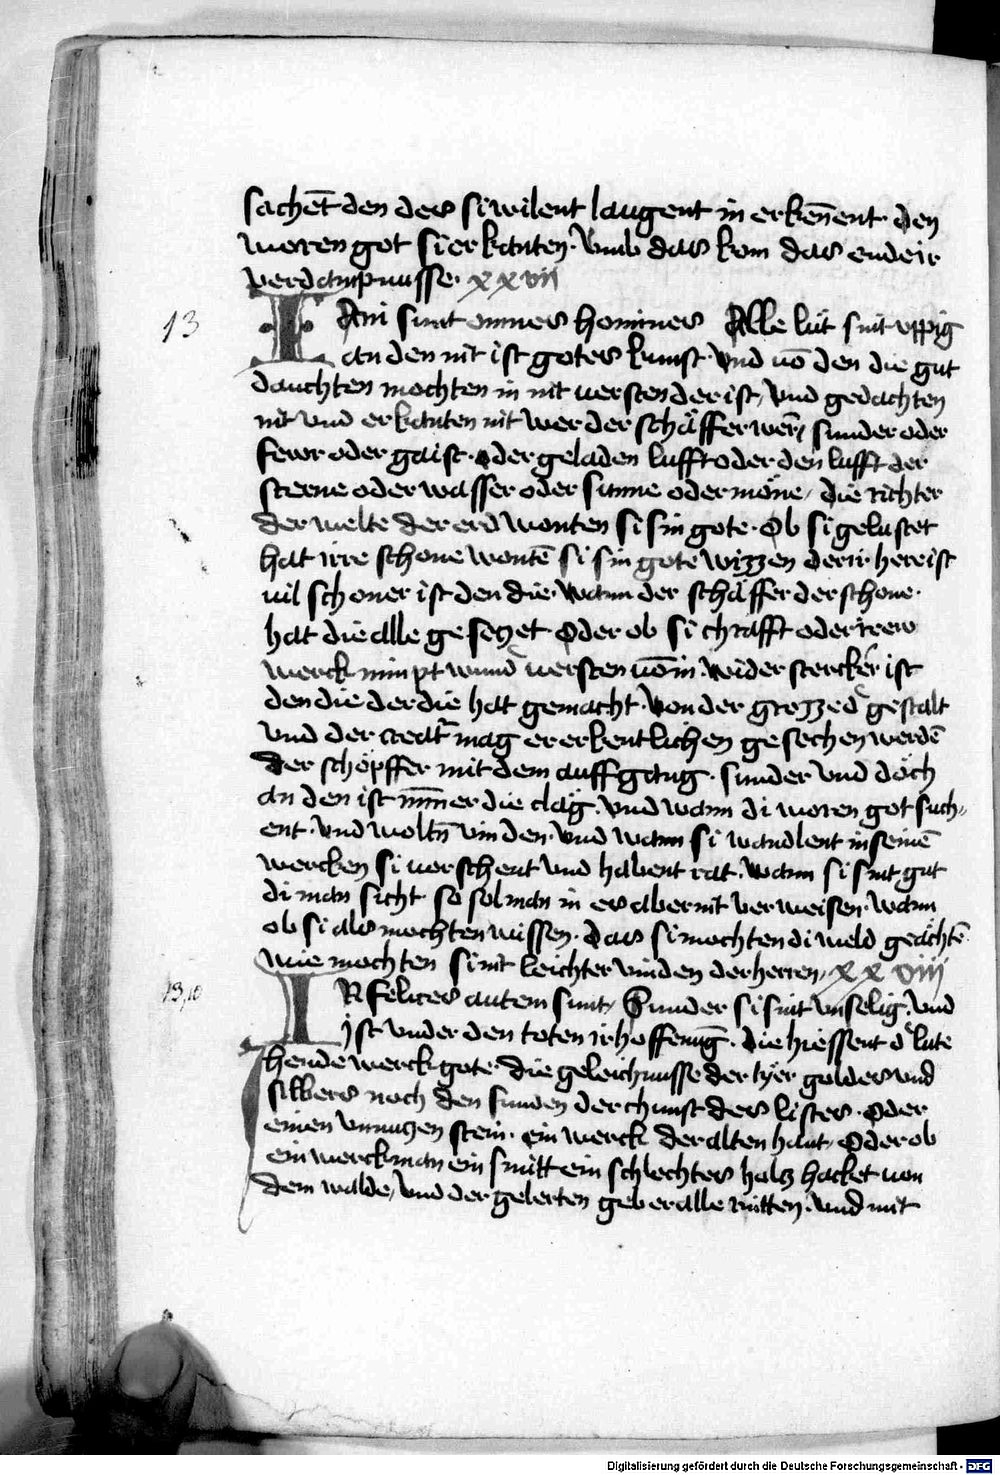 sachēt den des si wilent laugent in erkēnent. den
woren got si erkanten. Vmb das kom das ende ir
verdampnusse. xxvii
13
Ani sunt omnes homines Alle lüt sint vppig
an den nit ist gotes kunst. Vnd vō den die gut
dauchten mochten in nit versten der ist, Vnd gedachten
nit vnd erkanten nit wer der schäffer wer, sunder oder
fewr oder gaist. oder geladen lufft oder den lufft der
sterne oder wasser oder sunne oder möne, die richter
der welte der erd wonten si sin gote. Ob si gelustet
hat irre schone wontē si sin gote wizzen der ir here ist
vil schoner ist den die. Wann der schäffer der schone.
hat die alle gesetzet Oder ob si chrafft oder irew
werck nimpt wund versten vō in. wider stercker ist
den die der die hat gemacht. Von der grozzed gestalt
vnd der creat mag er erkentlichen gesechen werdē
der schöpffer mit dem auffgang. sunder vnd döch
an den ist mīner die clag. vnd wann di woren got such=
ent. vnd woltn vinden. vnd wann si wandlent in seinē
wercken si vorschent vnd habent rat. wann si sint gut
di man sicht so sol man in es aber nit verweisen. wann
ob si als mochten wissen. das si mochten di weld geächtē
wie mochten si nit leichter vinden der herren, xxviii
13,10
INfelices autem sunt, Sunder si sint vnselig. vnd
ist vnder den toten ir hoffenūg. die hiessent d lute
hende werck gote. die geleichnusse der tyer goldes vnd
silbers noch den sunden der chunst des listes. Oder
einen vnnutzen stein. ein werck der alten hant, Oder ob
ein werckman ein smitt ein schlechtes holtz hacket von
dem walde, vnd der gelerten geber alle rintten. vnd mit
Digitalisierung gefördert durch die Deutsche Forschungsgemeinschaft - DFG